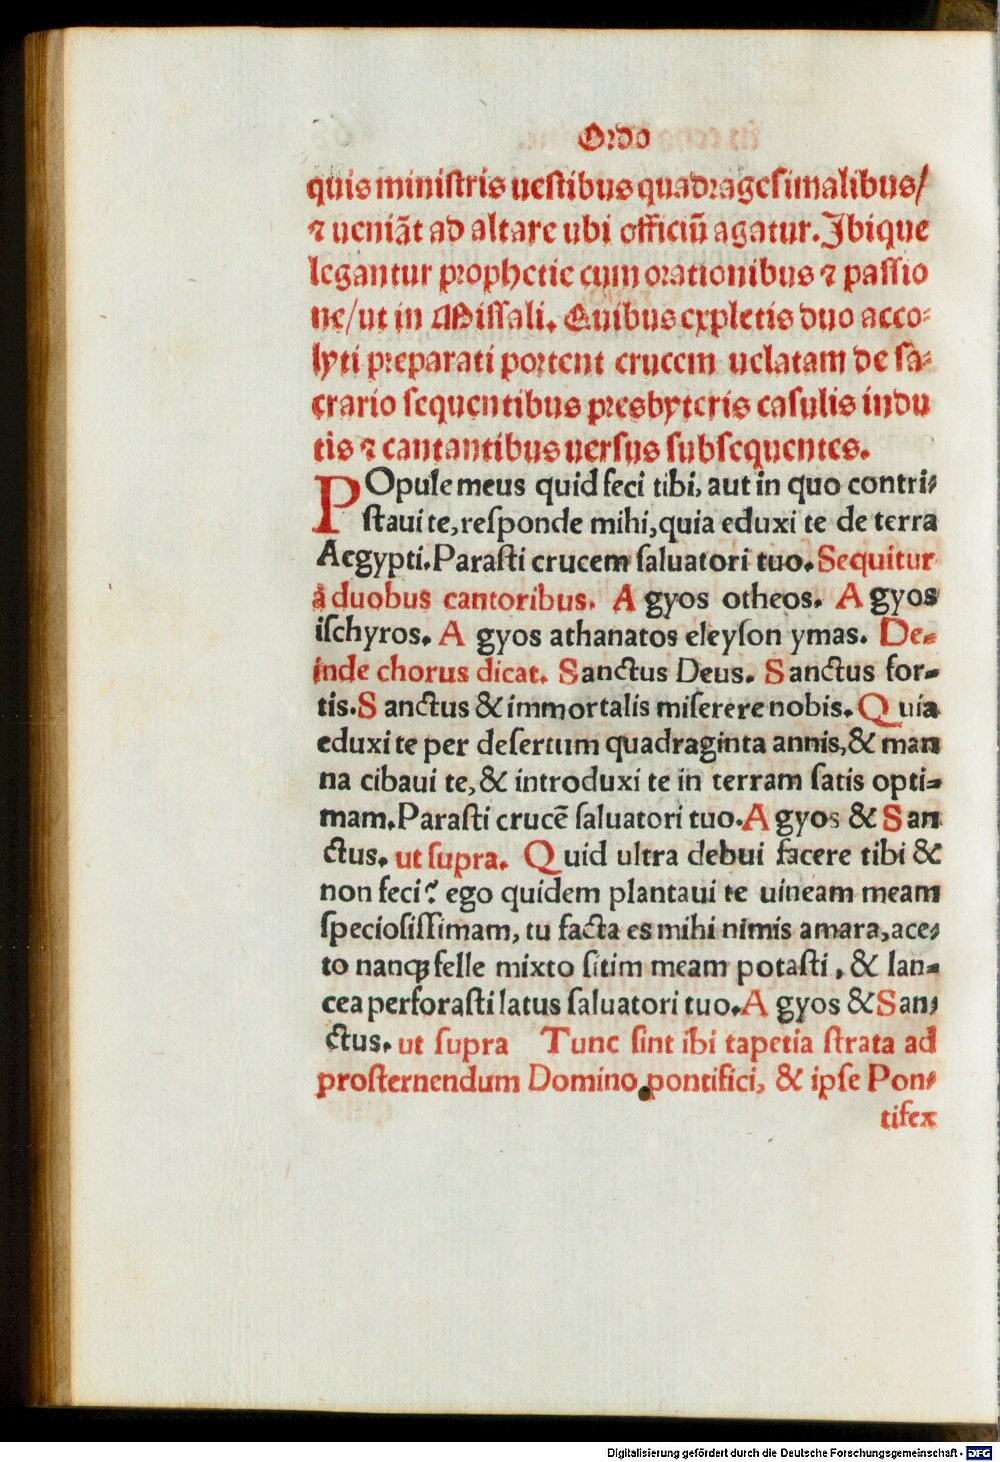 Ordo
quis miniſtris ueſtibus quadrageſimalibus/
⁊ ueniãt ad altare ubi officiũ agatur. Ibique
legantur prophetie cum orationibus ⁊ paſſio
ne/ut in Miſſali. Quibus expletis duo acco⸗
lyti preparati portent crucem uelatam de ſa⸗
crario ſequentibus presbyteris caſulis indu
tis ⁊ cantantibus uerſus ſubſequentes.
POpule meus quid feci tibi, aut in quo contri⸗
ſtaui te, reſponde mihi, quia eduxi te de terra
Aegypti. Paraſti crucem ſaluatori tuo. Sequitur
à duobus cantoribus. A gyos otheos. A gyos
iſchyros. A gyos athanatos eleyſon ymas. De⸗
inde chorus dicat. Sanctus Deus. S anctus for⸗
tis. S anctus & immortalis miſerere nobis. Q uia
eduxi te per deſertum quadraginta annis, & man
na cibaui te, & introduxi te in terram ſatis opti⸗
mam. Paraſti crucẽ ſaluatori tuo. A gyos & S an
ctus. ut ſupra. Q uid ultra debui facere tibi &
non feci? ego quidem plantaui te uineam meam
ſpecioſiſſimam, tu facta es mihi nimis amara, ace⸗
to nanqꝫ felle mixto ſitim meam potaſti, & lan⸗
cea perforaſti latus ſaluatori tuo. A gyos & San⸗
ctus. ut ſupra Tunc ſint ibi tapetia ſtrata ad
proſternendum Domino pontifici, & ipſe Pon⸗
tifex
Digitalisierung gefördert durch die Deutsche Forschungsgemeinschaft - DFG